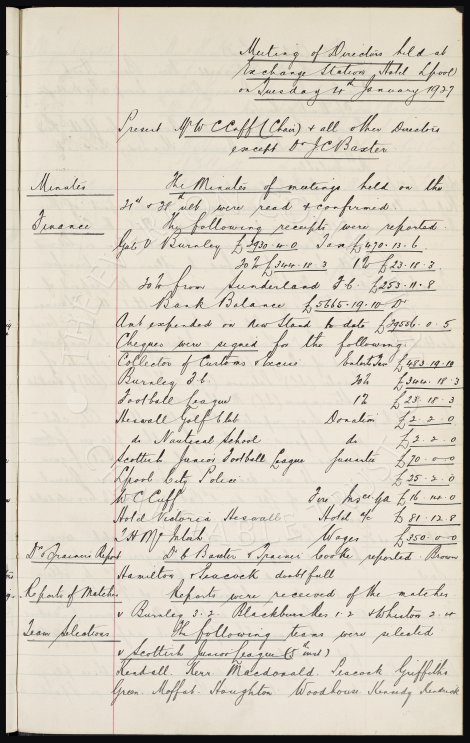 Meeting of Directors held at
Exchange Station Hotel Lpool
on Tuesday 4th January 1927
Present Mr W C Cuff (Chair) & all other Directors
except Dr J C Baxter
Minutes The Minutes of meetings held on the
21st & 28th ult were read & confirmed.
Finance The following receipts were reported.
Gate v Burnley £3930-4-0 Tax £470.13.6
20% £344.18.3 1% £23.18.3
20% from Sunderland F.C. £253.11.8
Bank Balance £5665.19.10 Dr
Amt expended on New Stand to date £29556.0.5
Cheques were signed for the following.
Collector of Customs & Excise Entert Tax £483.19.10
Burnley F.C. 20% £344.18.3
Football League 1% £23.18.3
Heswall Golf Club Donation £2.2.0
do Nautical School do £2-2.0
Scottish Junior Football League Guarantee £70.0.0
Lpool City Police £25-2.0
W C Cuff Fire Insce £16.14.0
Hotel Victoria Heswall Hotel a/c £81.12.8
T H McIntosh Wages £350.0.0
Dr & Trainers Report Dr C Baxter & Trainer Cooke reported Brown
Hamilton & Peacock doubtfull
Reports of Matches Reports were received of the matches
v Burnley 3.2 Blackburn Res 1-2 & Whiston 2-4
Team Selections The following teams were selected
v Scottish Junior League (5th inst)
Kendall. Kerr Macdonald. Peacock Griffiths
Green. Moffat. Houghton Woodhouse Kennedy Kendrick